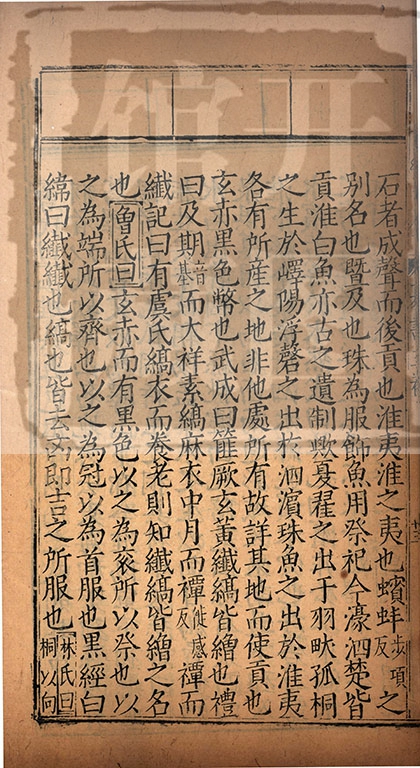 石者成聲而後貢也淮夷淮之夷也蠙蚌步項反之
別名也暨及也珠為服飾魚用祭祀今濠泗楚皆
貢淮白魚亦古之遺制歟夏翟之出于羽畎孤桐
之生於嶧陽浮磬之出於泗濱珠魚之出於淮夷
各有所產之地非他處所有故詳其地而使貢也
玄赤黑色幣也武成曰篚厥玄黃纖縞皆繒也禮
曰及期音基而大祥素縞麻衣中月而禫徒感反禫而
纖記曰有虞氏縞衣而養老則知纖縞皆繒之名
也曾氏曰玄赤而有黑色以之為衮所以祭也以
之為端所以齊也以之為冠以為首服也黑經白
緯曰纖纖也縞也皆去凶即吉之所服也林氏曰桐以向